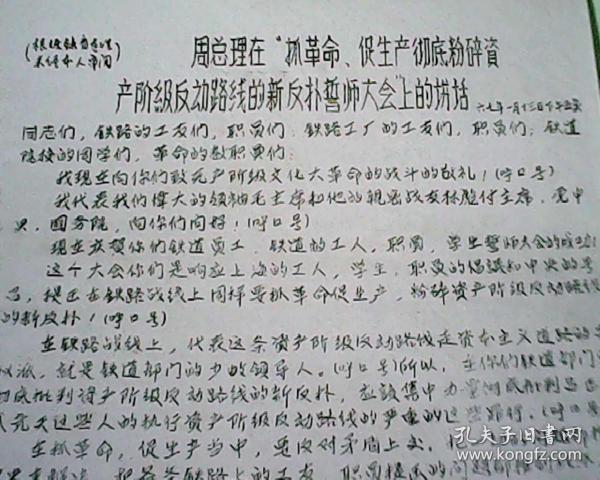 (根据录音整理
未经本人审阅)
周总理在“抓革命、促生产彻底粉碎資
产阶级反动路线的新反扑誓师大会”上的讲话 六七年一月十三日下午
同志们，铁路的工友们，职员们；铁路工厂的工友们，职员们；铁道
院校的同学们，革命的教职员们：
我现在向你们致无产阶级文化大革命的战斗的敬礼！(呼口号)
我代表我们伟大的领袖毛主席和他的親密战友林彪付主席，党中
央、国务院，向你们问好！(呼口号)
现在庆贺你们铁道员工、铁道的工人，职员，学生誓师大会的成功
这个大会你们是响应上海的工人，学生，职员的倡议和中央的号
召，提出在铁路战线上同样要抓革命促生产，粉碎资产阶级反动路线
的新反扑！(呼口号)
在铁路战线上，代表这条资产阶级反动路线走资本主义道路的当
权派，就是铁道部门的少数领导人。(呼口号)所以，在你们铁道部门
彻底批判资产阶级反动路线的新反扑，应该集中力量彻底批判
这些人的执行资产阶级反动路线的严重的这些罪行。(呼口号
在抓革命，促生产当中，
把各条铁路上的工友、职员提出的问题都
孔夫子旧书网
kongfz.com